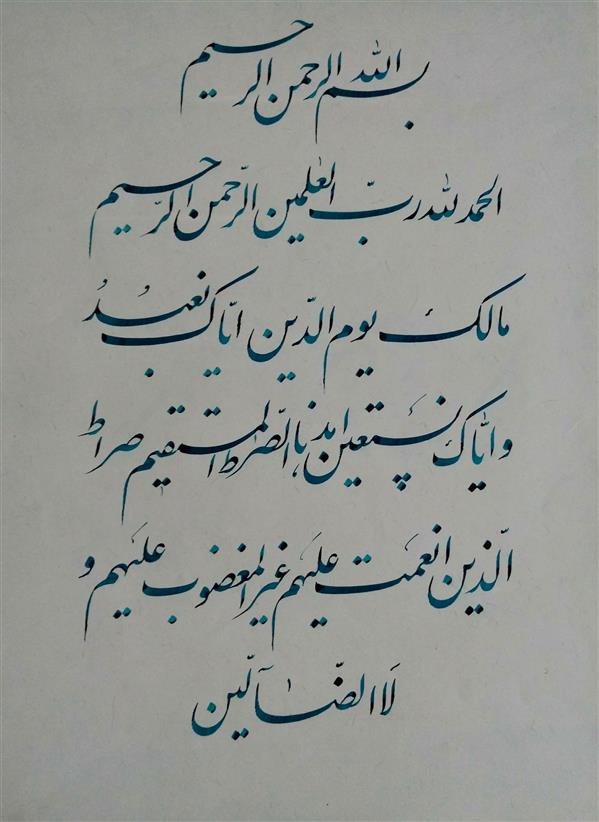 بسم الله الرحمن الرحیم
الحمد لله ربّ العٰلمین الرّحمن الرّحیم
مالک یوم الدّین ایّاک نعبدُ
و ایّاک نستعین اهدنا الصّرٰط المستقیم صراط
الّذین انعمت علیهم غیر المغضوب علیهم و
لَا الضّآلّین